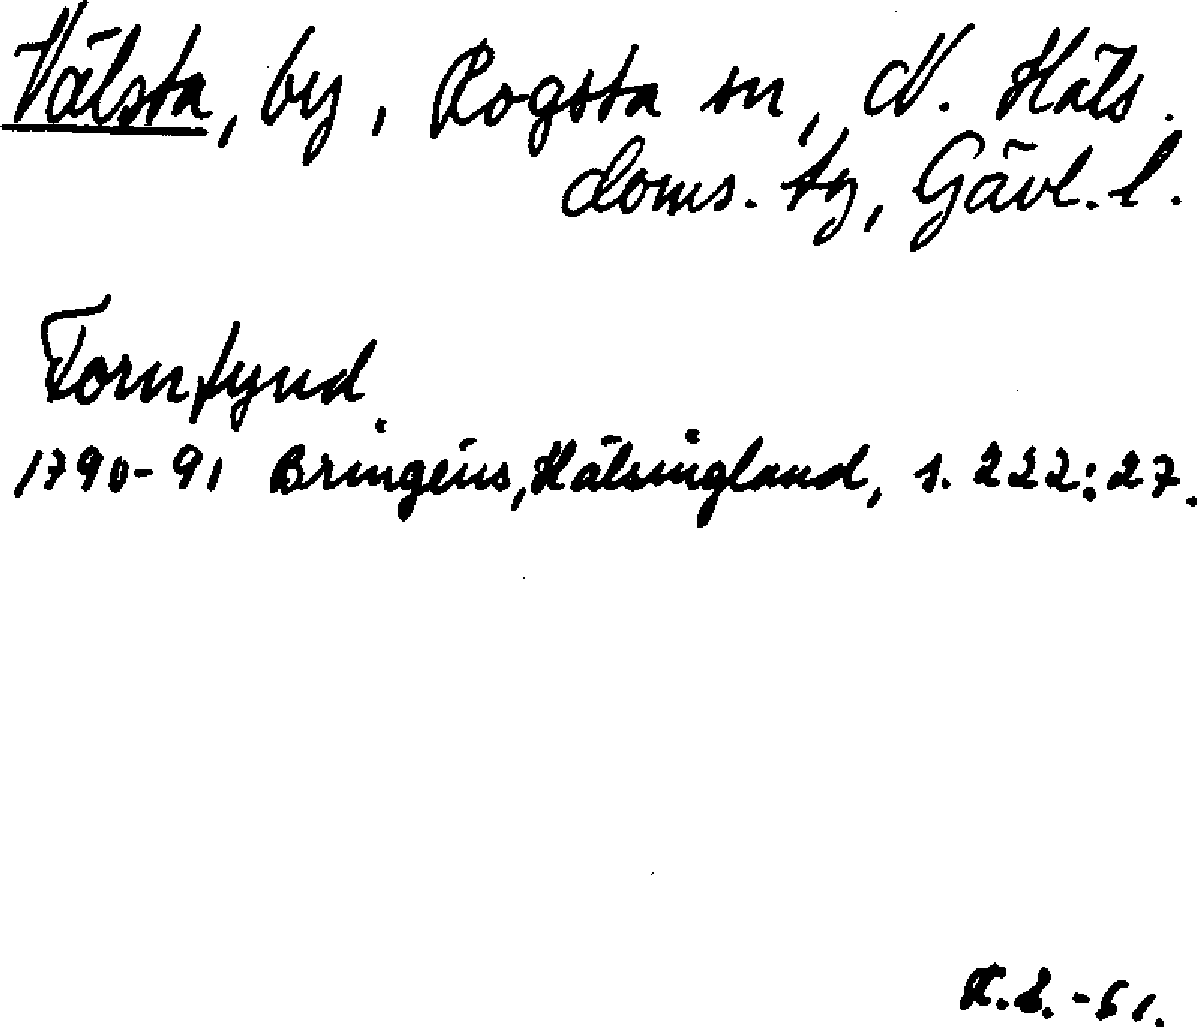 Välsta, by, Rogsta sn, N. Häls.
doms. tg, Gävl. l.
Fornfynd.
1790-91 Bringéus, Hälsingland, s. 222:27.
K.L. -61.